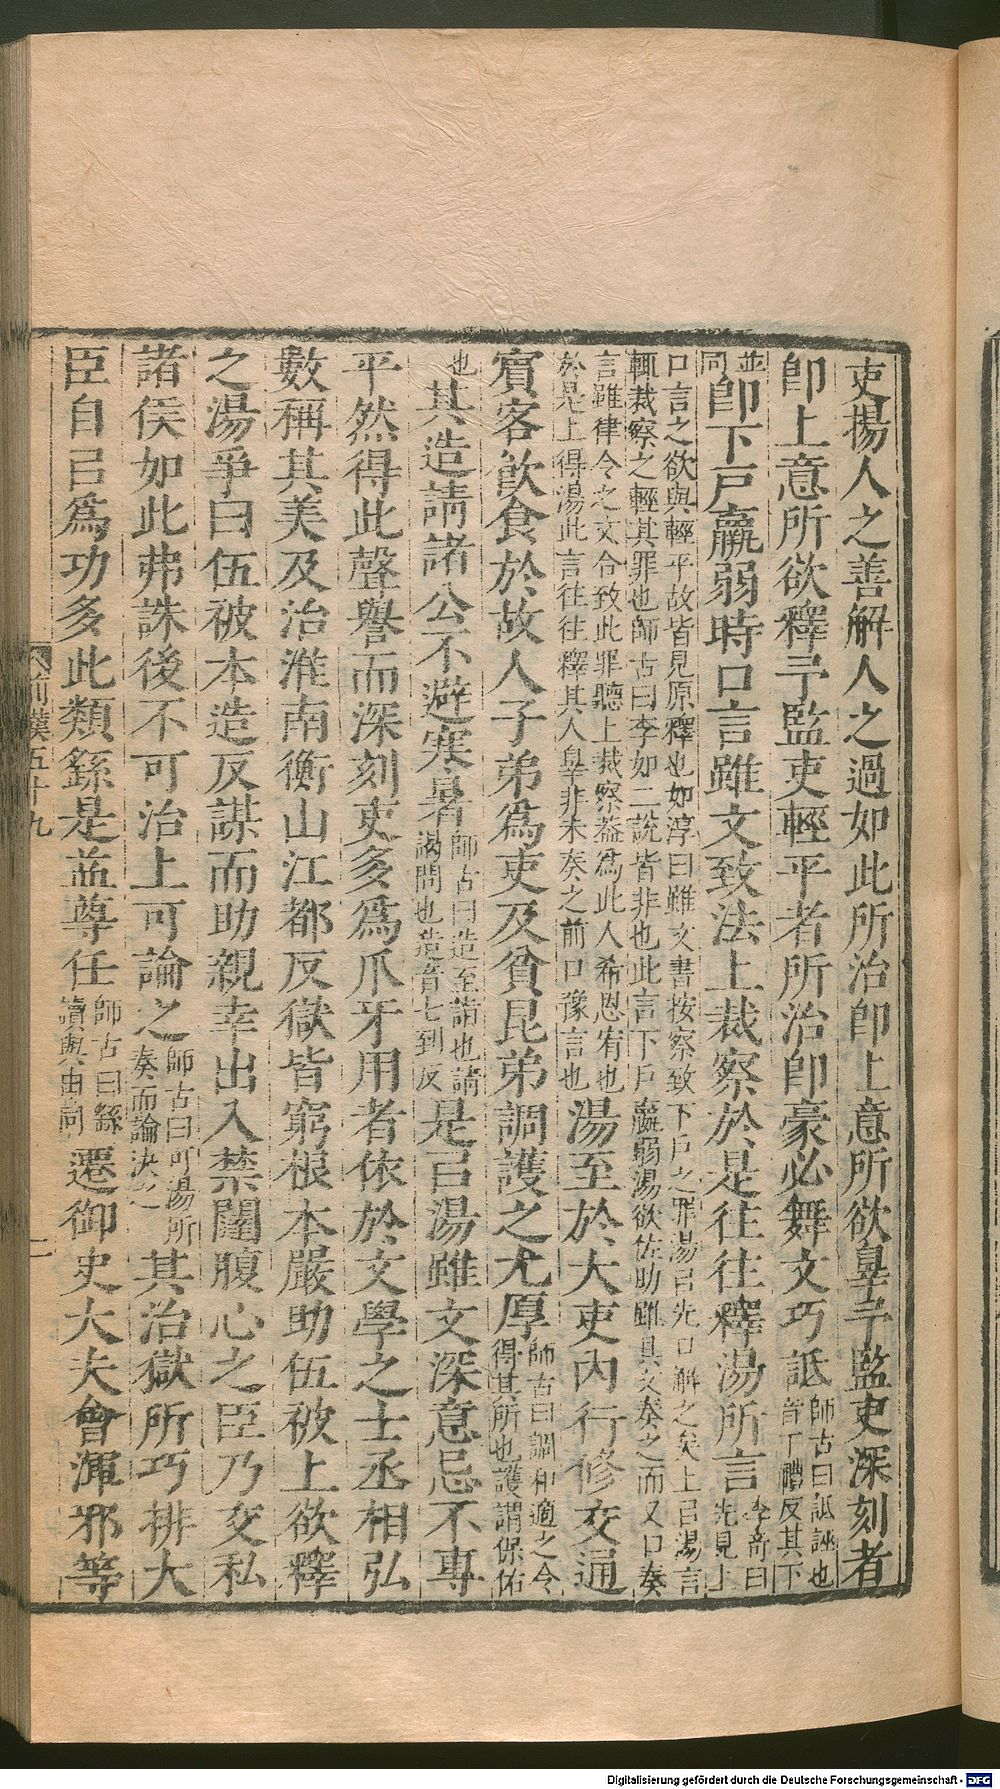 吏揚人之善解人之過如此所治卽上意所欲辠予監吏深刻者
卽上意所欲釋予監吏輕平者所治卽豪必舞文巧詆師古曰詆誣也音丁禮反其下
並同卽下戶羸弱時口言雖文致法上裁察於是往往釋湯所言李奇曰先見上
口言之欲與輕平故皆見原釋也如淳曰雖文書按察致下戶之罪湯㠯先口解之矣上㠯湯言
輒裁察之輕其罪也師古曰李如二說皆非也此言下戶羸弱湯欲佐助雖具文奏之而又口奏
言雖律令之文合致此罪聽上裁察葢爲此人希恩宥也
於是上得湯此言往往釋其人辠非未奏之前口豫言也湯至於大吏內行修交通
賓客飮食於故人子弟爲吏及貧昆弟調護之尤厚師古曰調和適之令得其所也護謂保佑
也其造請諸公不避寒暑師古曰造至詣也請謁問也造音七到反是㠯湯雖文深意忌不專
平然得此聲譽而深刻吏多爲爪牙用者依於文學之士丞相弘
數稱其美及治淮南衡山江都反獄皆窮根本嚴助伍被上欲釋
之湯爭曰伍被本造反謀而助親幸出入禁闥腹心之臣乃交私
諸侯如此弗誅後不可治上可論之師古曰可湯所奏而論決之其治獄所巧排大
臣自㠯爲功多此類繇是益尊任師古曰繇讀與由同遷御史大夫會渾邪等
前漢五十九
二
Digitalisierung gefördert durch die Deutsche Forschungsgemeinschaft - DFG